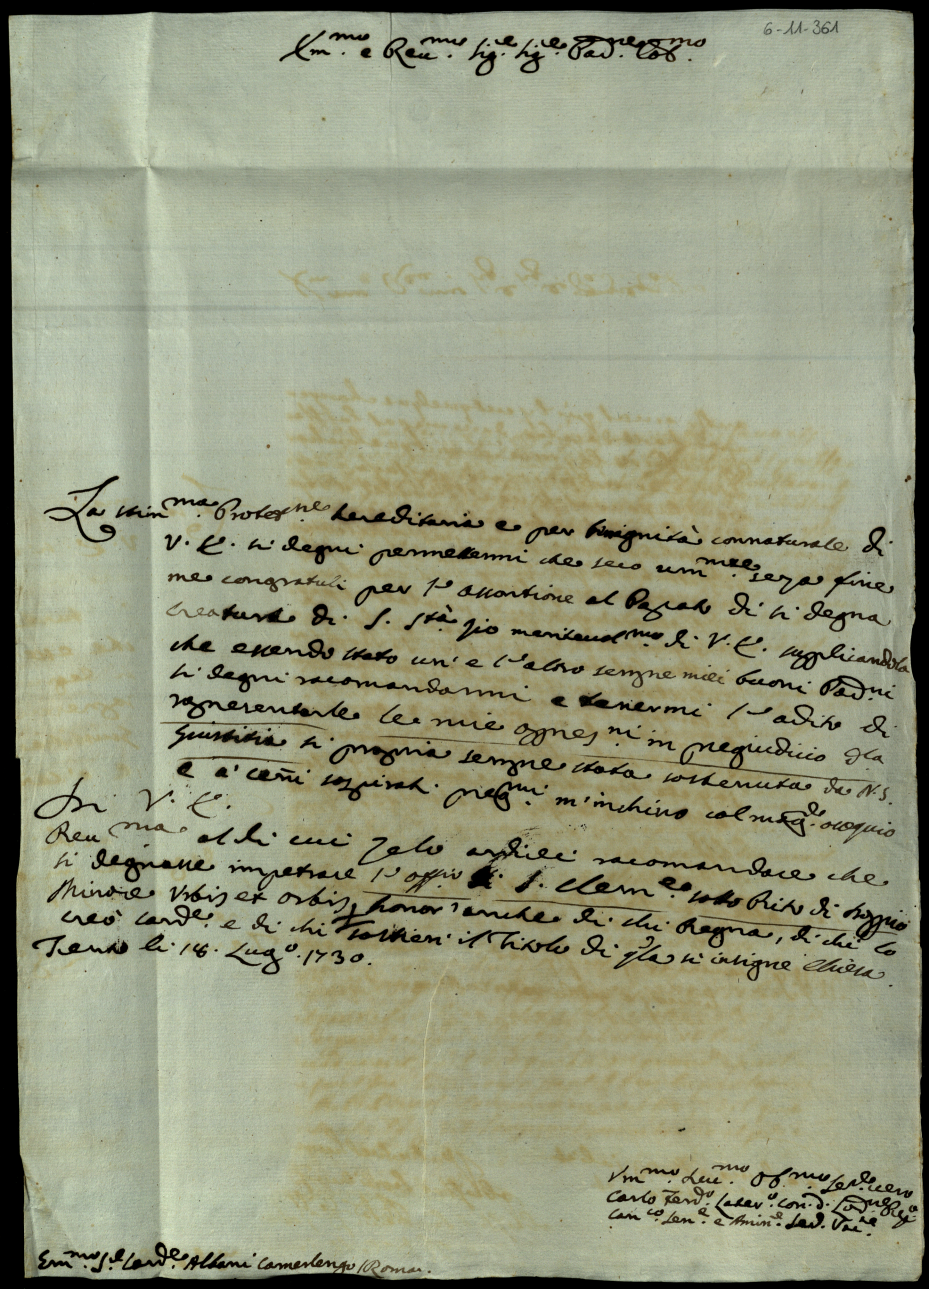 6-11-361
Em.mo e Reu.mo Sig.e Sig.e Pad.ne Col.mo
La stim.ma Protez.ne hereditaria e per benignità connaturale di
V. E. si degni permettermi che seco um.mte senza fine
me congratuli per l'assontione al Papato di si degna
creatura di S. Stà Zio meriteuol.mo di V. E. supplicandola
che essendo stato un' e l'altro sempre miei buoni Pad.ni
si degni racomandarmi e tenermi l'adito di
rapresentarle le mie oppres.ni in pregiudicio della
Giustitia si propria sempre stata sostenuta da N.S.
e a' cenni sospirati m'inchino col ossequio
Di V. E.
Reu.ma al di cui Zelo ardirei racomandare che
si degnasse impetrare l'offio di S. Clem.e sotto Rito di doppio
Minore Vrbis et Orbis, honor' anche di chi Regna, di chi lo
creò Card.e e di chi sostiene il Titolo di qla si insigne Chiesa.
Trento li 18. Lug.o 1730.
Vm.mo Deu.mo Ob.mo Ser.e vero
Carlo Ferd.o
can.co
Em.mo S.e Card.e Albani Camerlengo / Roma.